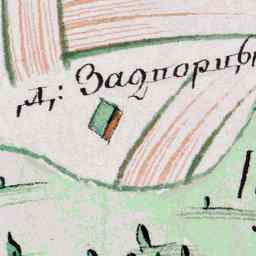 д: Задпорцы